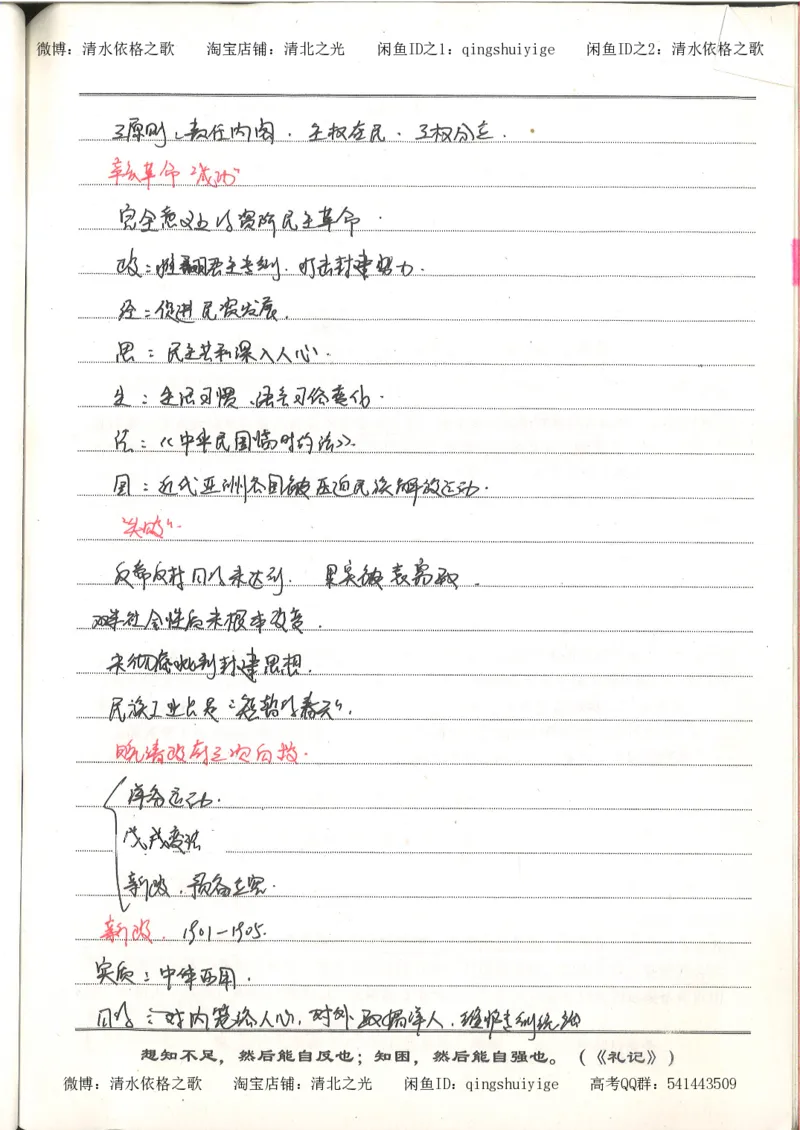 微博：清水依格之歌 淘宝店铺：清北之光 闲鱼ID之1：qingshuiyige 闲鱼ID之2：清水依格之歌
3原则：责任内阁．主权在民．3权分立．
辛亥革命"成功"
完全意义上的资阶民主革命．
政：推翻君主专制．打击封建势力．
经：促进民资发展．
思：民主共和深入人心．
生：生活习惯、语言习俗变化．
法：《中华民国临时约法》．
国：近代亚洲各国被压迫民族解放运动．
"失败"．
反帝反封目的未达到．果实被袁窃取．
社会性质未根本改变．
未彻底批判封建思想．
民族工业只是"短暂的春天"．
晚清政府三次自救．
洋务运动．
戊戌变法
新政．预备立宪．
新政．1901－1905．
实质：中体西用．
目的：对内笼络人心，对外取媚洋人，维护专制统治
想知不足，然后能自反也；知困，然后能自强也。（《礼记》）
微博：清水依格之歌 淘宝店铺：清北之光 闲鱼ID：qingshuiyige 高考QQ群：541443509